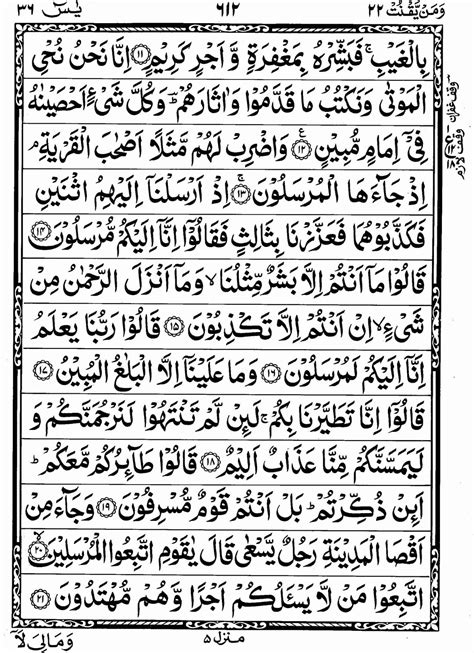 وَمَنْ يَّقْنُتْ ٢٢ ٦١٢ يٰسٓ ٣٦
بِالْغَيْبِ ۚ فَبَشِّرْهُ بِمَغْفِرَةٍ وَّاَجْرٍ كَرِيْمٍ ﴿۱۱﴾ اِنَّا نَحْنُ نُحْیِ
الْمَوْتٰى وَنَكْتُبُ مَا قَدَّمُوْا وَاٰثَارَهُمْ ؕ وَكُلَّ شَیْءٍ اَحْصَيْنٰهُ
فِیْۤ اِمَامٍ مُّبِيْنٍ ﴿۱۲﴾ وَاضْرِبْ لَهُمْ مَّثَلًا اَصْحٰبَ الْقَرْيَةِ ۘ
اِذْ جَآءَهَا الْمُرْسَلُوْنَ ﴿۱۳﴾ اِذْ اَرْسَلْنَاۤ اِلَيْهِمُ اثْنَيْنِ
فَكَذَّبُوْهُمَا فَعَزَّزْنَا بِثَالِثٍ فَقَالُوْۤا اِنَّاۤ اِلَيْكُمْ مُّرْسَلُوْنَ ﴿۱۴﴾
قَالُوْا مَاۤ اَنْتُمْ اِلَّا بَشَرٌ مِّثْلُنَا ۙ وَمَاۤ اَنْزَلَ الرَّحْمٰنُ مِنْ
شَیْءٍ ۙ اِنْ اَنْتُمْ اِلَّا تَكْذِبُوْنَ ﴿۱۵﴾ قَالُوْا رَبُّنَا يَعْلَمُ
اِنَّاۤ اِلَيْكُمْ لَمُرْسَلُوْنَ ﴿۱۶﴾ وَمَا عَلَيْنَاۤ اِلَّا الْبَلٰغُ الْمُبِيْنُ ﴿۱۷﴾
قَالُوْۤا اِنَّا تَطَيَّرْنَا بِكُمْ ۚ لَئِنْ لَّمْ تَنْتَهُوْا لَنَرْجُمَنَّكُمْ وَ
لَيَمَسَّنَّكُمْ مِّنَّا عَذَابٌ اَلِيْمٌ ﴿۱۸﴾ قَالُوْا طَآئِرُكُمْ مَّعَكُمْ ؕ
اَئِنْ ذُكِّرْتُمْ ؕ بَلْ اَنْتُمْ قَوْمٌ مُّسْرِفُوْنَ ﴿۱۹﴾ وَجَآءَ مِنْ
اَقْصَا الْمَدِيْنَةِ رَجُلٌ يَّسْعٰى قَالَ يٰقَوْمِ اتَّبِعُوا الْمُرْسَلِيْنَ ﴿۲۰﴾
اتَّبِعُوْا مَنْ لَّا يَسْـَٔلُكُمْ اَجْرًا وَّهُمْ مُّهْتَدُوْنَ ﴿۲۱﴾
منزل ۵
وَمَالِیَ لَاۤ